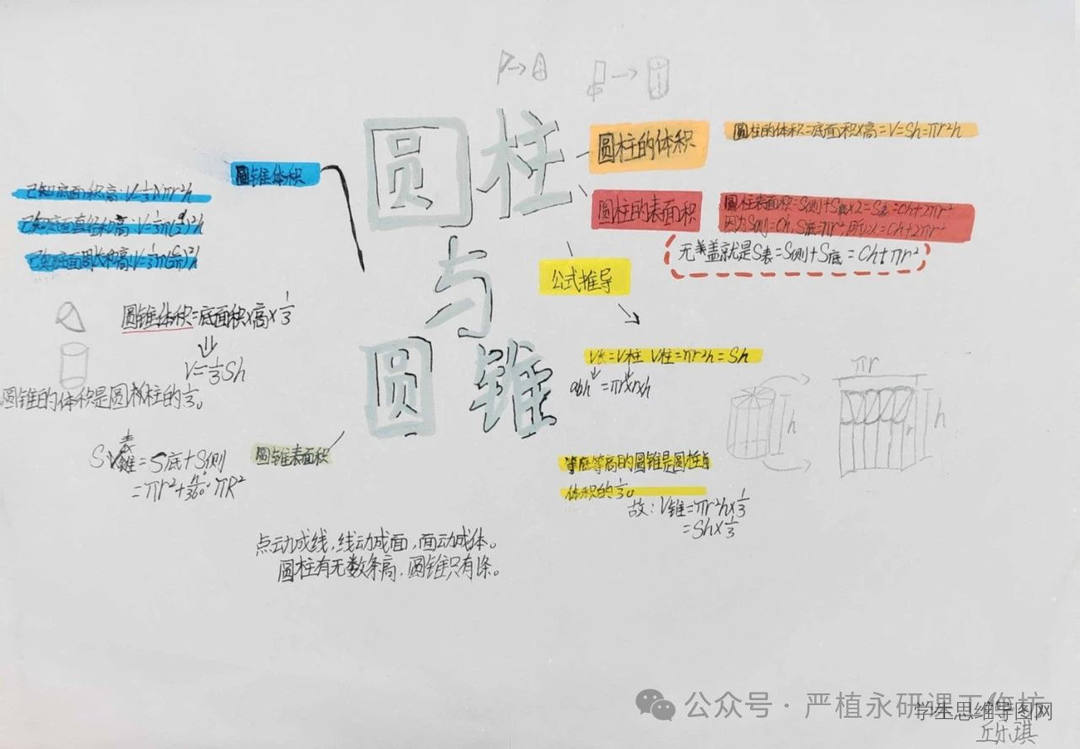 圆柱与圆锥
圆柱的体积
圆柱的体积=底面积×高=V=Sh=πr²h
圆柱的表面积
圆柱表面积=S侧+S底×2=S表=Ch+2πr²
因为S侧=Ch,S底=πr²,所以×2=Ch+2πr²
无盖就是S表=S侧+S底=Ch+πr²
公式推导
V长=V柱 V柱=πr²h=Sh
abh=πr×r×h
πr
h
h
r
等底等高的圆锥是圆柱
体积的1/3。
故:V锥=πr²h×1/3
=Sh×1/3
圆锥体积
已知底面积高:V=1/3πr²h
已知底面直径和高:V=1/3π(d/2)²h
已知底面周长和高:V=1/3π(C/2π)²h
圆锥体积=底面积×高×1/3
V=1/3Sh
圆锥的体积是圆柱的1/3。
圆锥表面积
S表锥=S底+S侧
=πr²+n/360·πR²
点动成线,线动成面,面动成体。
圆柱有无数条高,圆锥只有条。
公众号·严植永研课工作坊
学生思维导图网